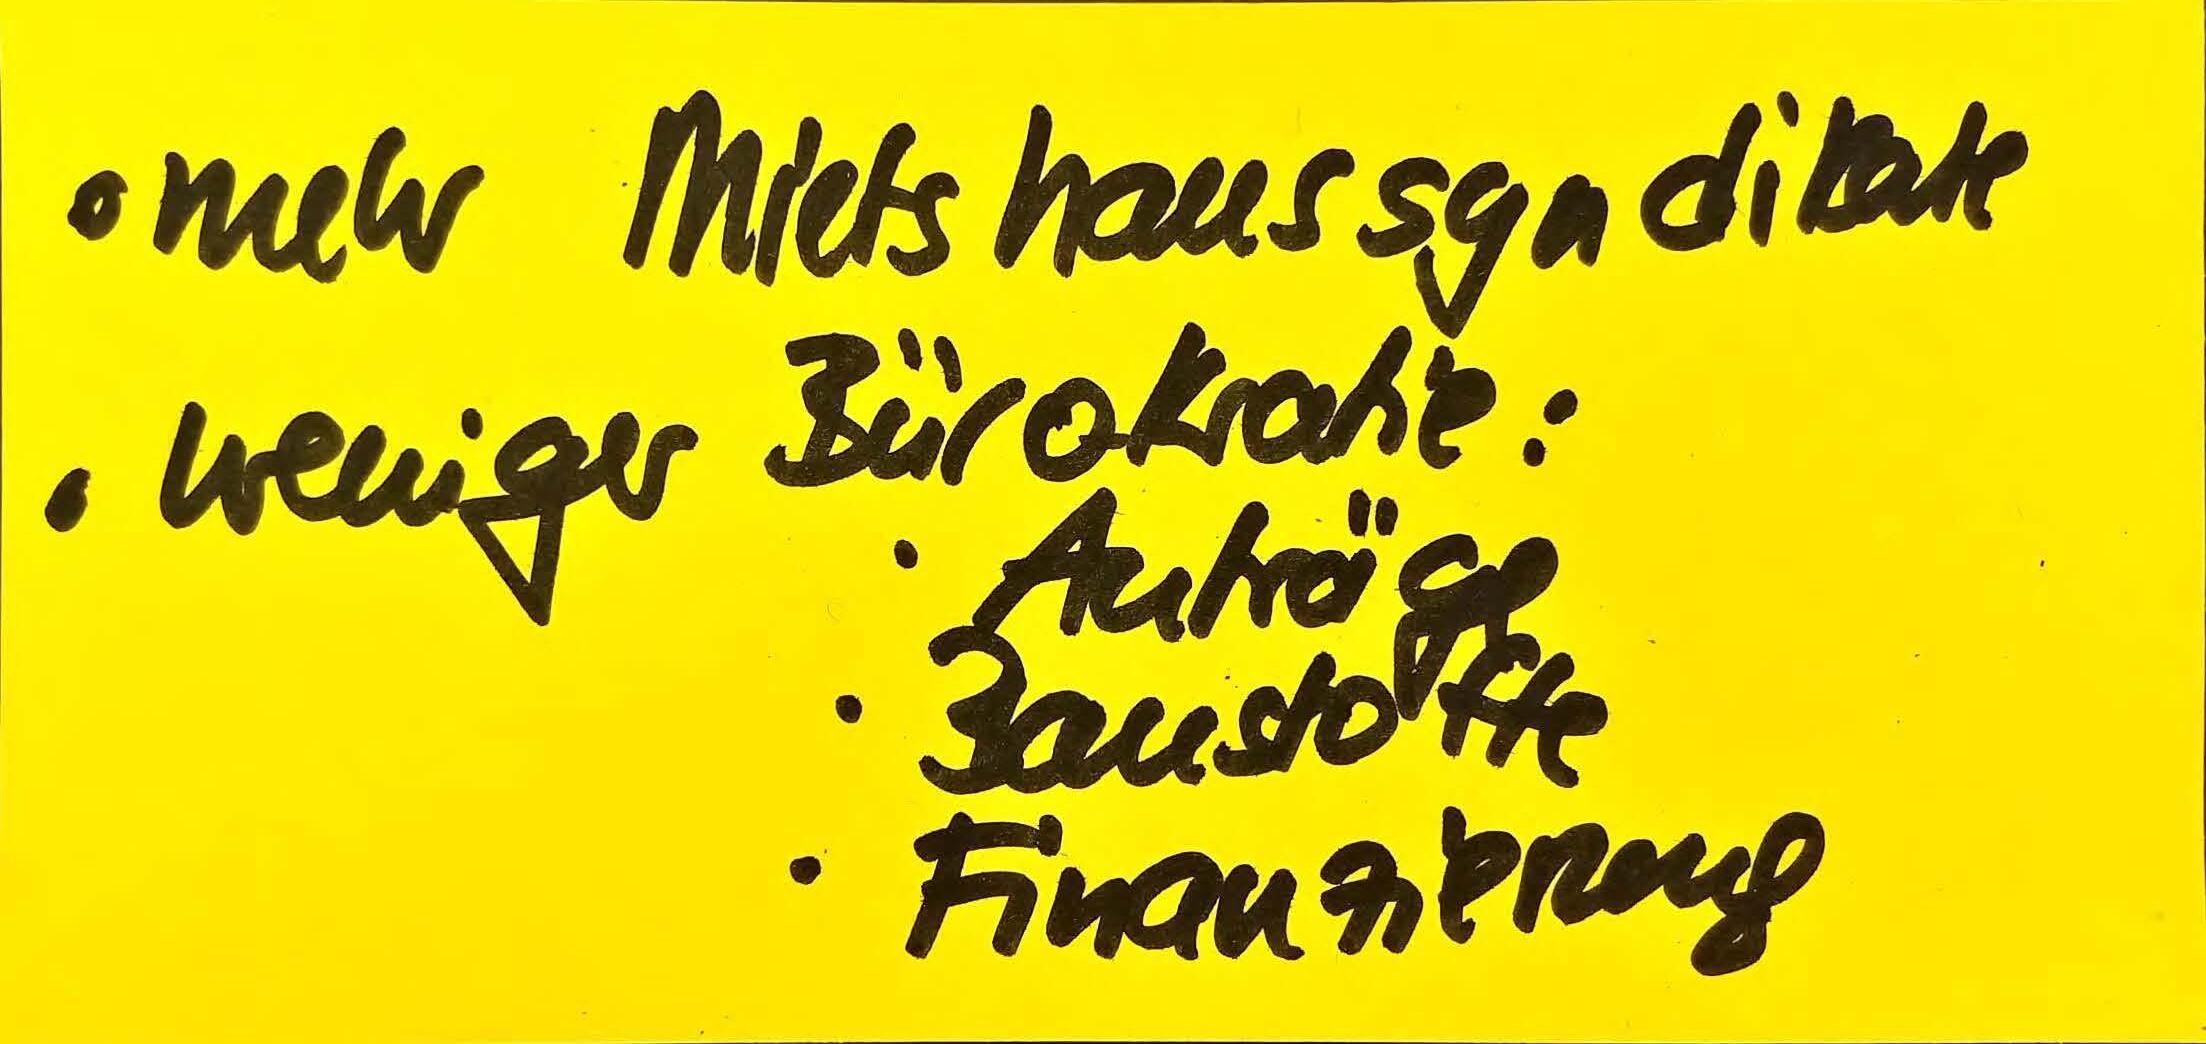 • mehr Mietshaussyndikate
• weniger Bürokratie:
• Anträge
• Baustoffe
• Finanzierung